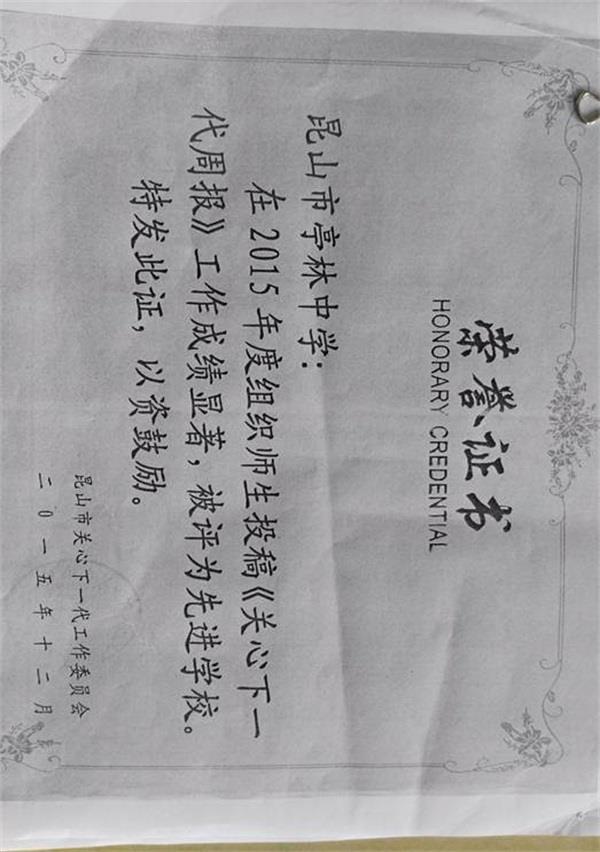 荣誉证书
HONORARY CREDENTIAL
昆山市亭林中学：
在2015年度组织师生投稿《关心下一
代周报》工作成绩显著，被评为先进学校。
特发此证，以资鼓励。
昆山市关心下一代工作委员会
二0一五年十二月